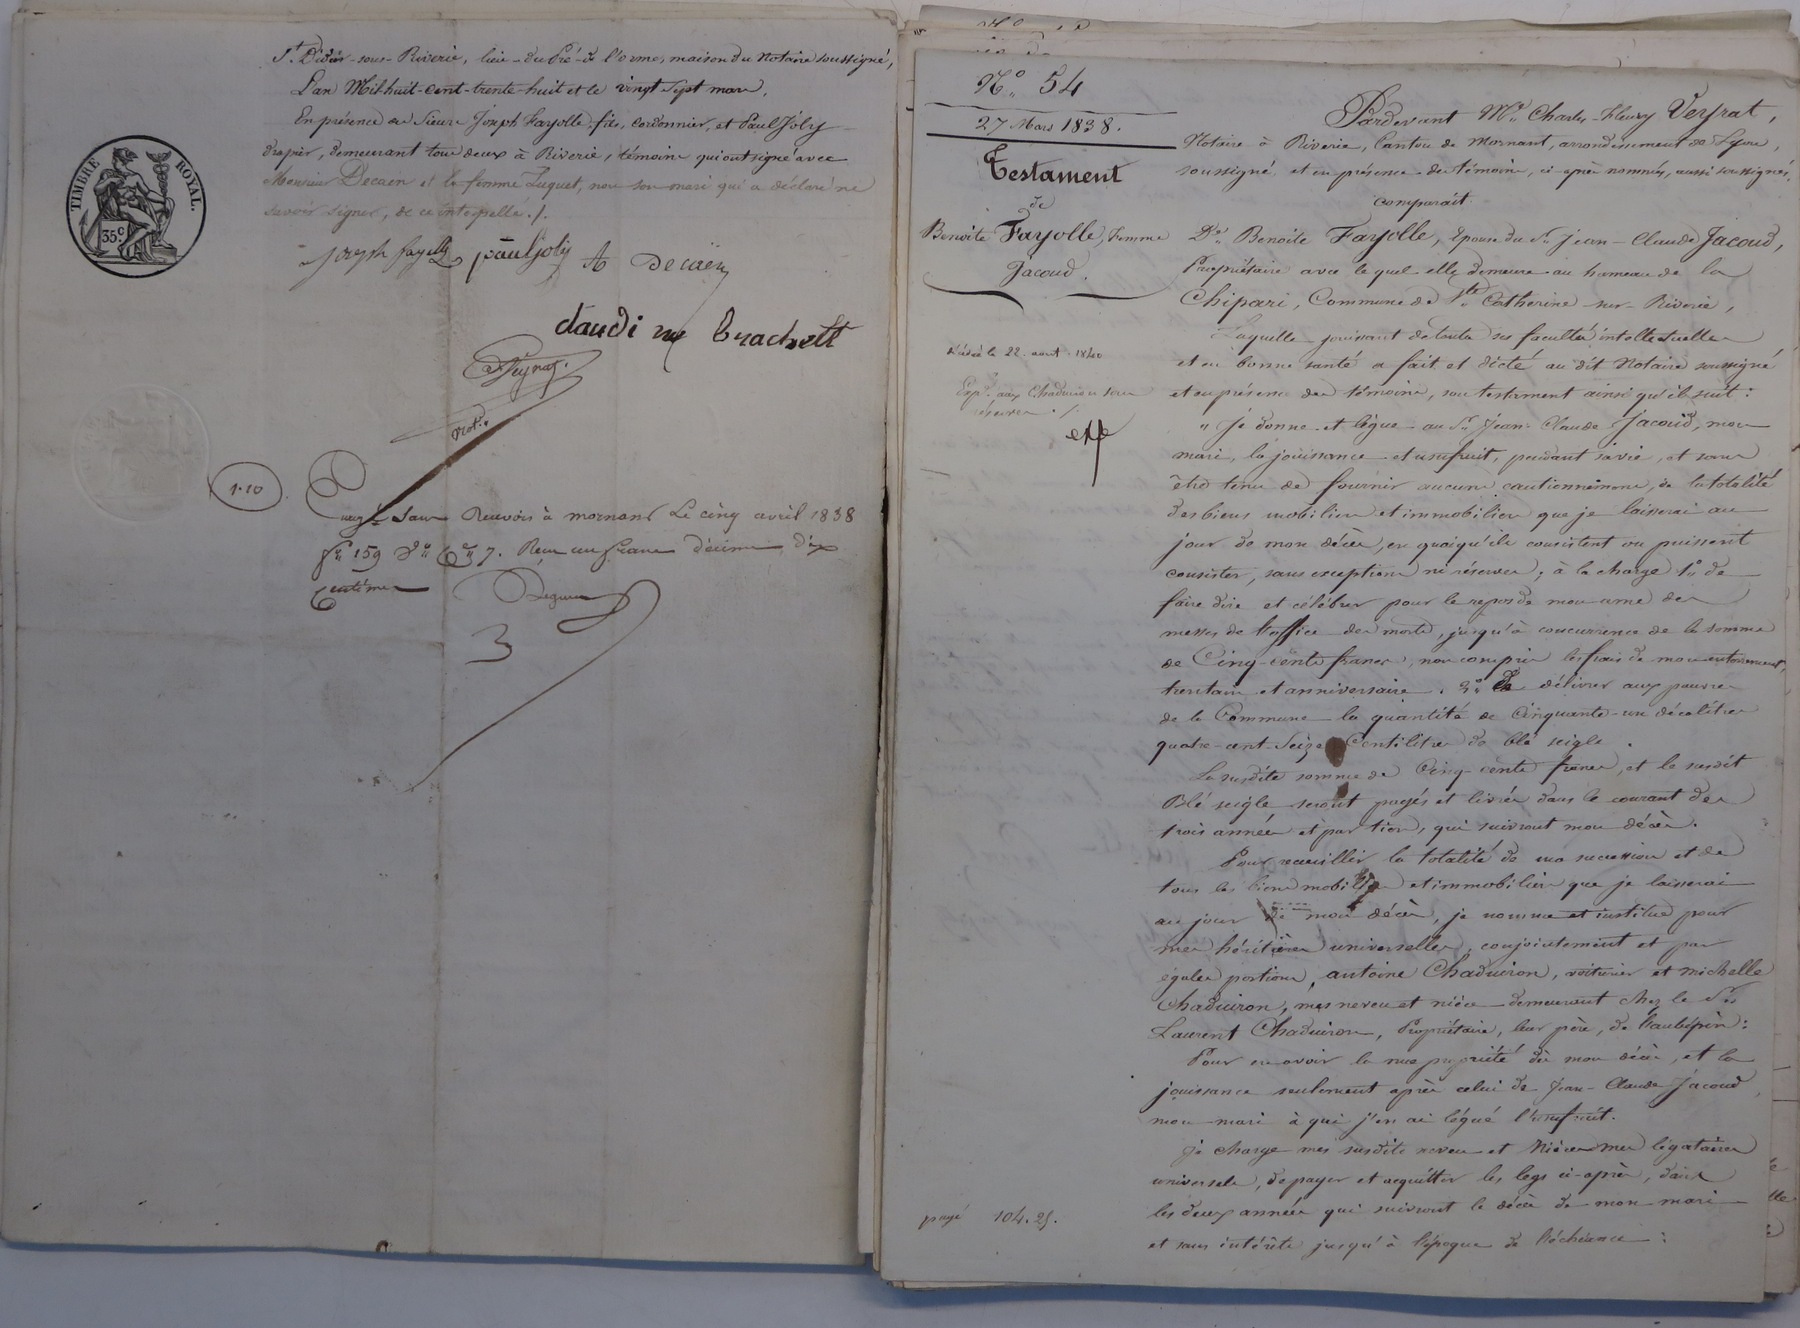 St Didier-sous-Riverie, lieu du Pré-de l'orme, maison du Notaire soussigné,
L'an Mil-huit-cent-trente-huit et le vingt sept mars,
En présence de Sieurs Joseph Fayolle fils, cordonnier, et Paul Joly
drapier, demeurant tous deux à Riverie, témoins qui ont signé avec
Monsieur Decaen et la femme Luquet, non son mari qui a déclaré ne
savoir signer, de ce interpellé ./.
TIMBRE ROYAL.
35c
joseph fayolle paul joly A Decaen
claudine brachett
Veyrat.
Not.re
1.10
Enregé Sans Renvois à mornant Le cinq avril 1838
fo 159 Vo Ce 7. Reçu un franc décime dix
Centimes
3
No 54
27 Mars 1838.
Testament
de
Benoite Fayolle, Femme
Jacoud.
Décédé le 22 aout 1840
Expé aux Chaduiron sous
réserve ./.
payé 104.25.
Pardevant Me Charles-Fleury Veyrat,
Notaire à Riverie, Canton de Mornant, arrondissement de Lyon,
soussigné, et en présence des témoins, ci-après nommés, aussi soussignés,
comparait
De Benoite Fayolle, Epouse du Sr Jean-Claude Jacoud,
Propriétaire avec le quel elle demeure au hameau de la
Chipari, Commune de Ste Catherine-sur-Riverie,
Laquelle jouissant de toutes ses facultés intellectuelles
et en bonne santé a fait et dicté au dit Notaire soussigné
et en présence des témoins, son testament ainsi qu'il suit:
" Je donne et lègue au Sr Jean-Claude Jacoud, mon
mari, la jouissance et usufruit, pendant sa vie, et sans
être tenu de fournir aucuns cautionnemens, de la totalité
des biens mobiliers et immobiliers que je laisserai au
jour de mon décès, en quoiqu'ils consistent ou puissent
consister, sans exception ni réserve; à la charge 1o de
faire dire et célébrer pour le repos de mon ame des
messes de l'office des morts, jusqu'à concurrence de la somme
de Cinq-cents francs, non compris les frais de mon enterrement,
trentain et anniversaire. 2o De délivrer aux pauvres
de la Commune la quantité de Cinquante-un décalitres
quatre-cent-Seize Centilitres de blé seigle.
La susdite somme de Cinq-cents francs, et le susdit
Blé seigle seront payés et livrés dans le courant des
trois années et par tiers, qui suivront mon décès.
Pour recueillir la totalité de ma succession et de
tous les biens mobiliers et immobiliers que je laisserai
au jour de mon décès, je nomme et institue pour
mes héritiers universelles, conjointement et par
égales portions, antoine Chaduiron, voiturier et michelle
Chaduiron, mes neveu et nièce demeurant chez le Sr
Laurent Chaduiron, Propriétaire, leur père, de Laubépin:
Pour en avoir la nue propriété dès mon décès, et la
jouissance seulement après celui de Jean-Claude Jacoud,
mon mari à qui j'en ai légué l'usufruit.
Je charge mes susdits neveu et Nièce mes légataires
universels, de payer et acquitter les legs ci-après, dans
les deux années qui suivront le décès de mon mari
et sans intérêts jusqu'à l'époque de l'échéance: